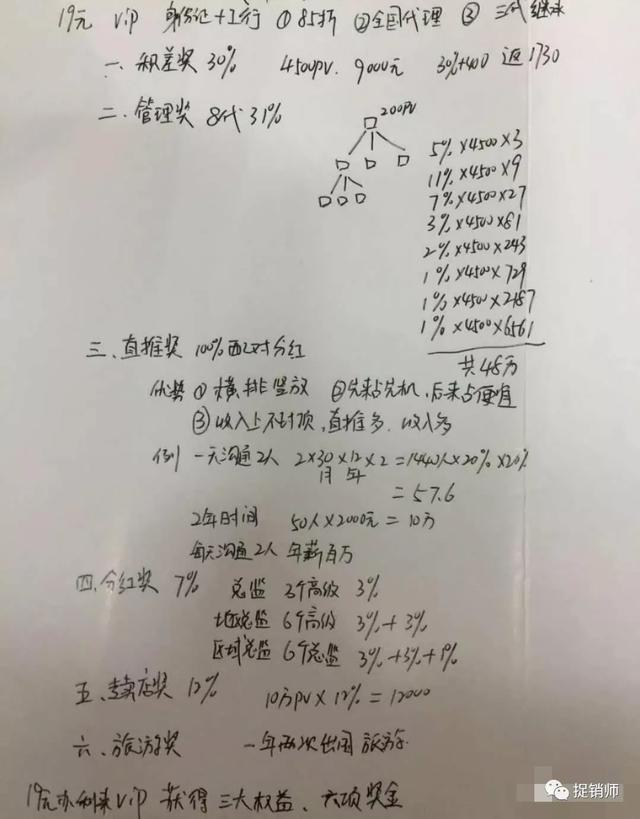 19元 VIP 身份证+工行 ①85折 ②全国代理 ③三代继承
一、积差奖 30% 4500PV. 9000元 30%+400 返1730
二、管理奖 8代31%
200PV
5%×4500×3
11%×4500×9
7%×4500×27
3%×4500×81
2%×4500×243
1%×4500×729
1%×4500×2187
1%×4500×6561
共48万
三、直推奖 100%匹对分红
优势 ①横排竖放 ②先来占先机,后来占便宜
③收入上不封顶,直推多.收入多
例 一天沟通2人 2×30×12×2=1440人×20%×20%
月 年
=57.6
2年时间 50人×2000元=10万
每天沟通2人 年薪百万
四、分红奖 7% 总监 3个高级 3%
地区总监 6个高级 3%+3%
区域总监 6个总监 3%+3%+1%
五、专卖店奖 12% 10万PV×12%=12000
六、旅游奖 一年两次出国旅游
19元办利来VIP 获得三大权益、六项奖金
捉销师